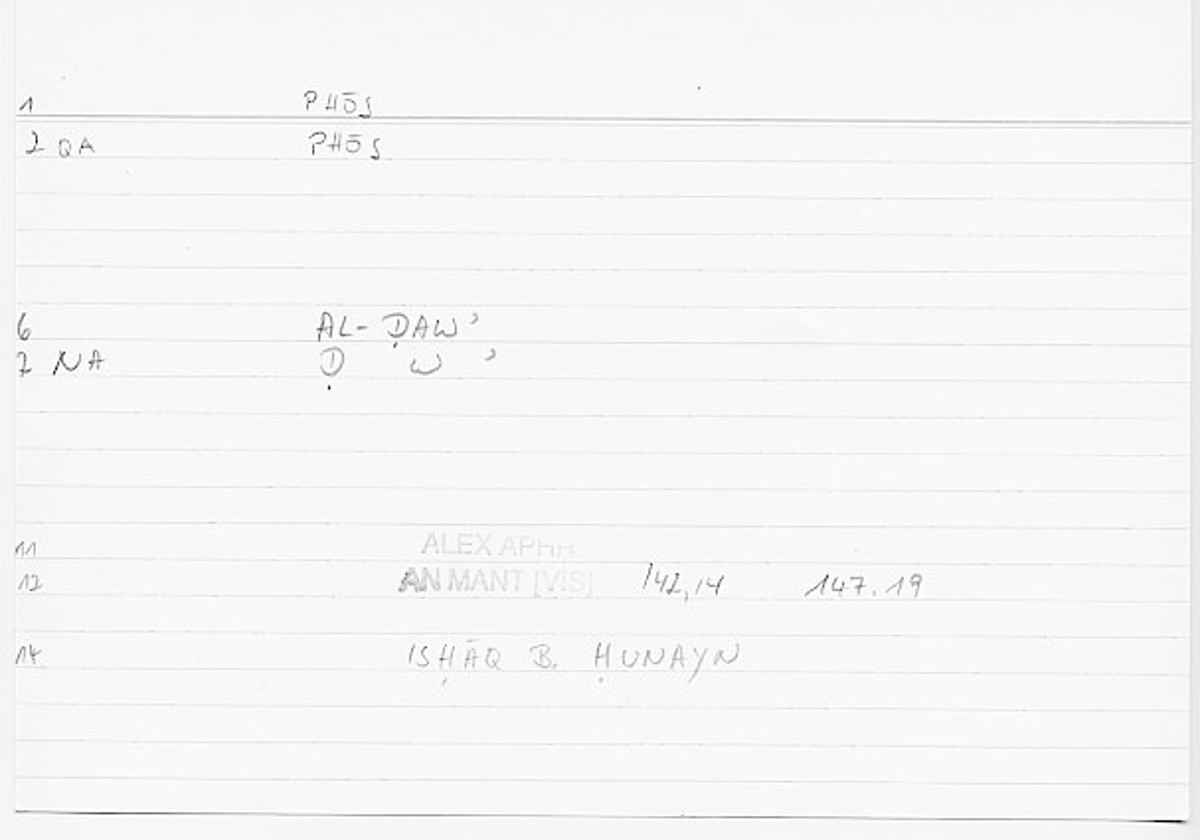 1 PHŌS
2 QA PHŌS
6 AL-ḌAWʾ
7 NA Ḍ W ʾ
11 ALEX APHR
12 AN MANT [VIS] 142,14 147.19
14 ISḤĀQ B. ḤUNAYN